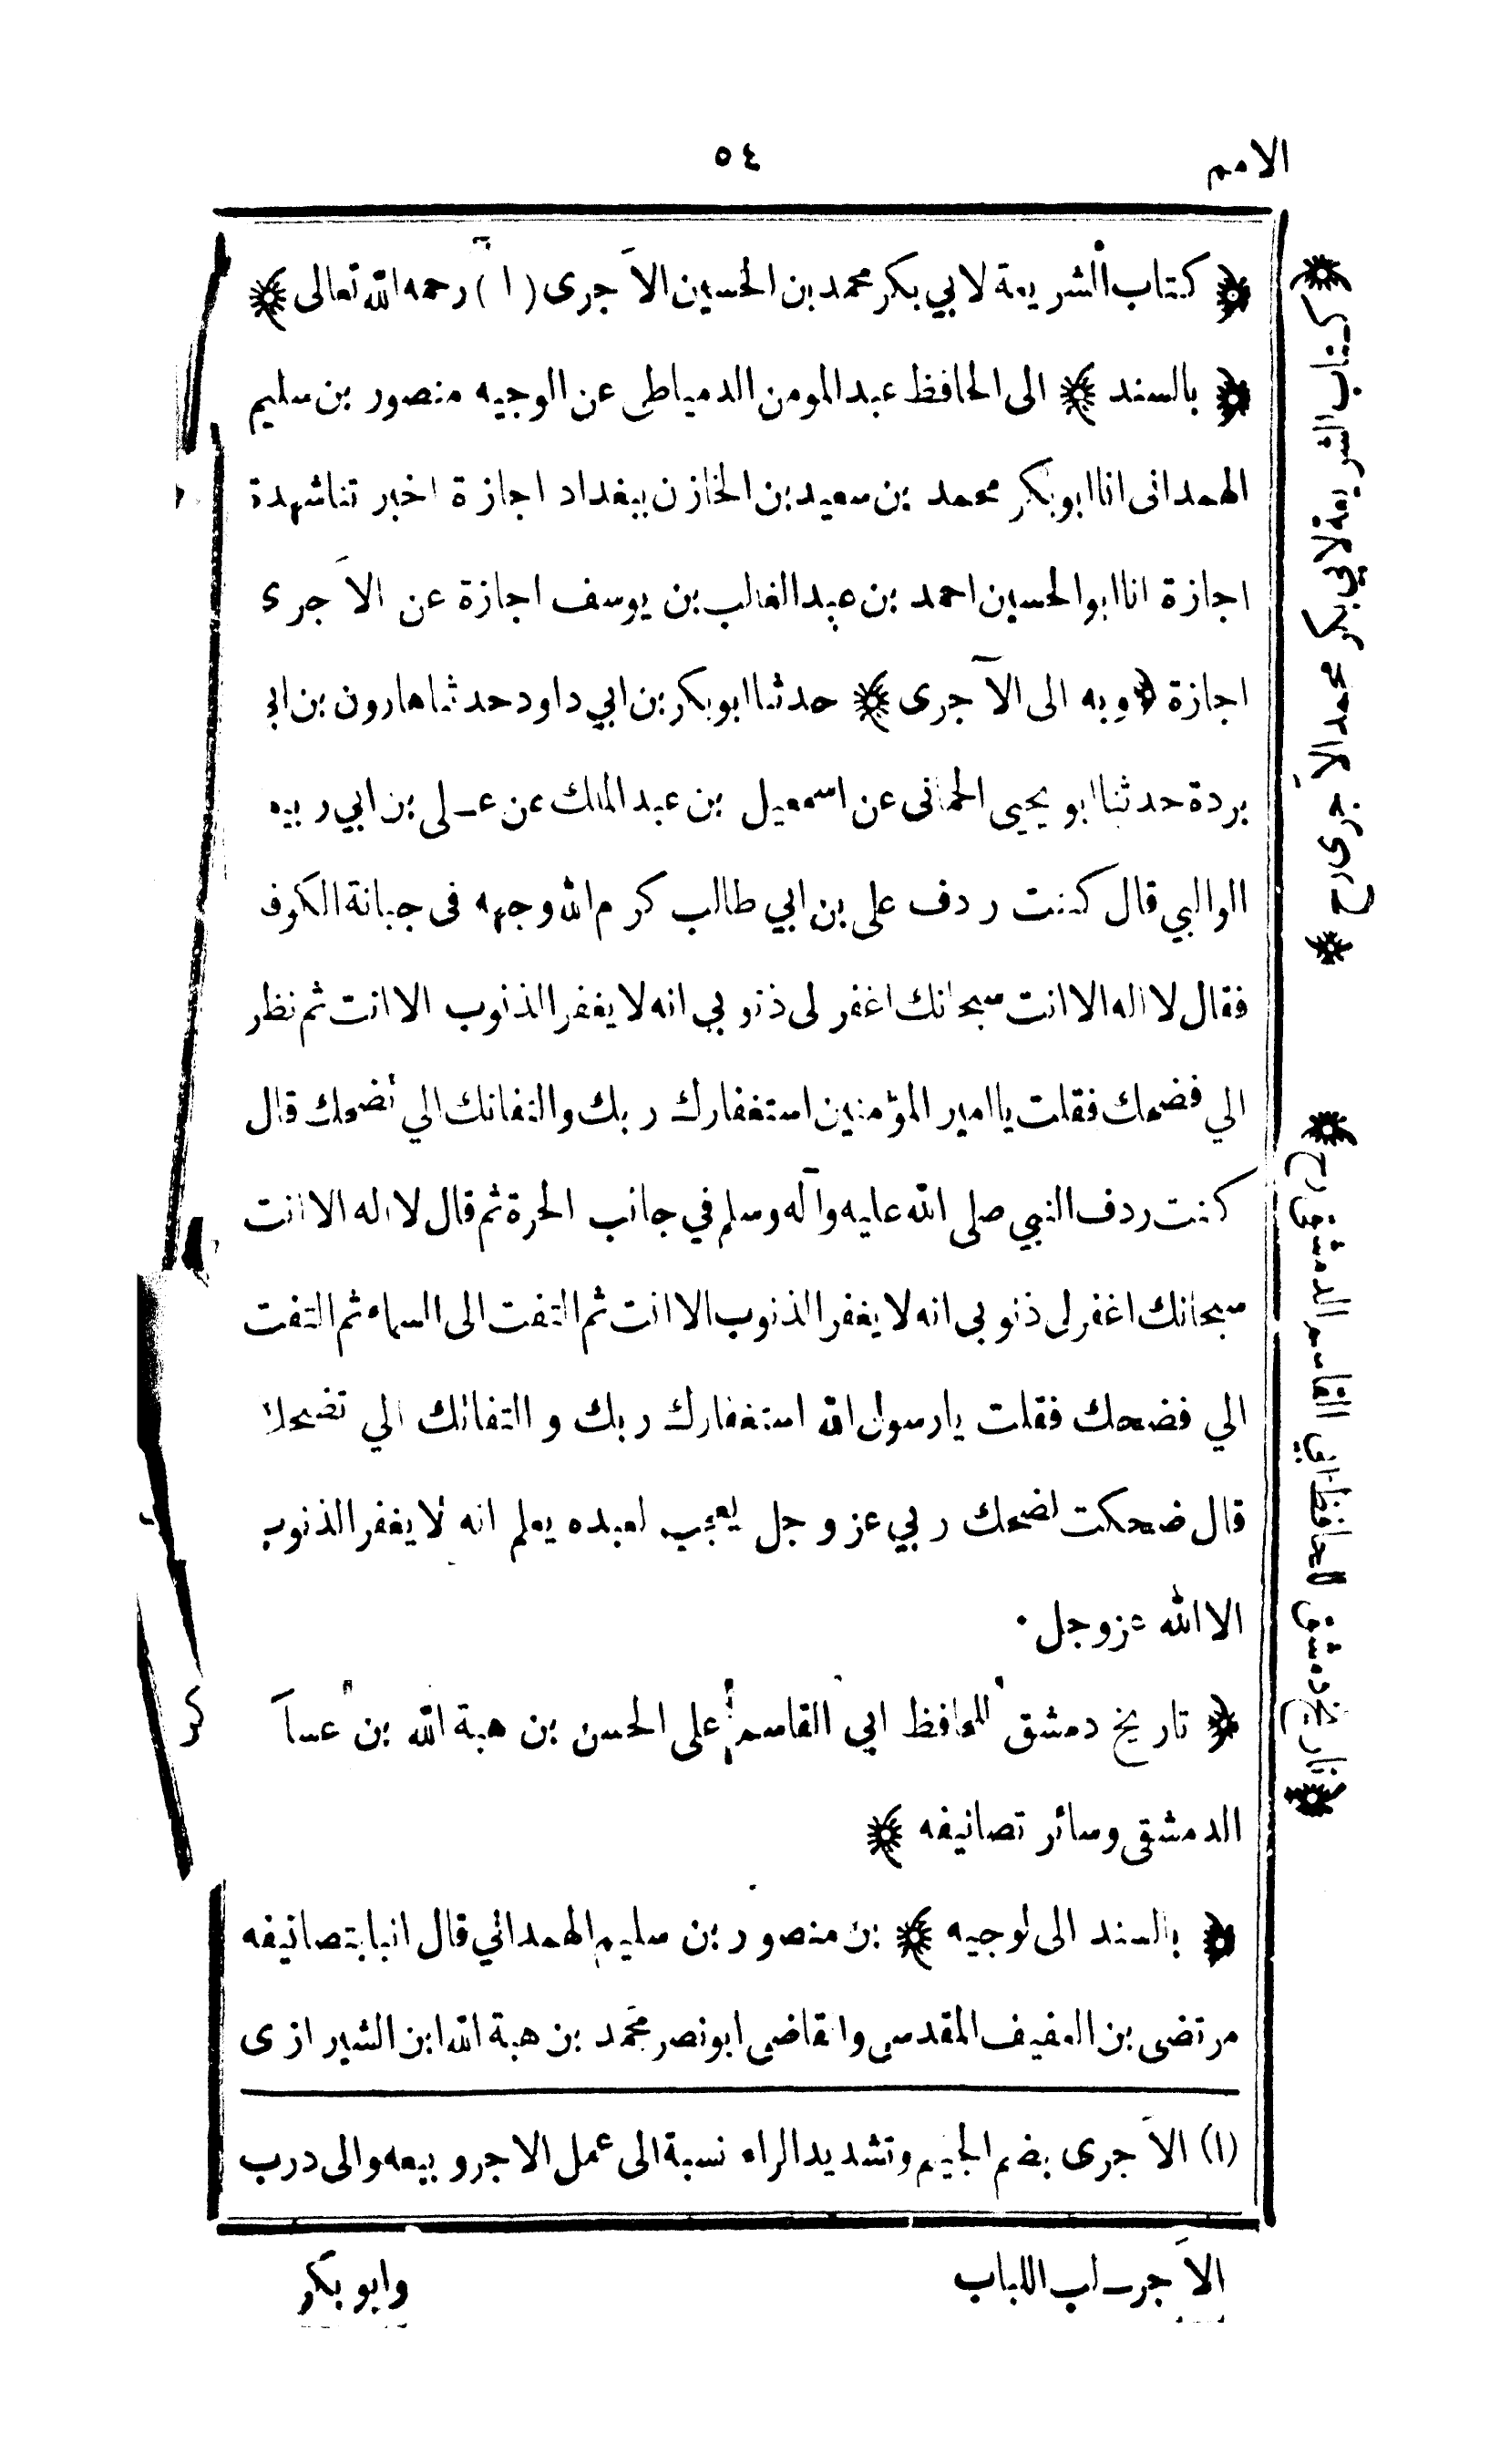 الامم
٥٤
﴿ كتاب الشريعة لابي بكر محمد بن الحسين الآجرى (١) رحمه الله تعالى ﴾
﴿ بالسند ﴾ الى الحافظ عبد المومن الدمياطى عن الوجيه منصور بن سليم
الهمدانى انا ابو بكر محمد بن سعيد بن الخازن ببغداد اجازة اخبر تنا شهدة
اجازة انا ابو الحسين احمد بن عبد الغالب بن يوسف اجازة عن الآجرى
اجازة ﴿ وبه الى الآجرى ﴾ حدثنا ابو بكر بن ابي داود حدثنا هارون بن ابي
بردة حدثنا ابو يحيى الحمانى عن اسمعيل بن عبد الملك عن عـلى بن ابي ربيه
الوالبي قال كنت ردف على بن ابي طالب كرم الله وجهه فى جبانة الكوف
فقال لا اله الا انت سبحانك اغفر لى ذنوبي انه لا يغفر الذنوب الا انت ثم نظر
الي فضحك فقلت يا امير المؤمنين استغفارك ربك والتفاتك الي تضحك قال
كنت ردف النبي صلى الله عليه وآله وسلم في جانب الحرة ثم قال لا اله الا انت
سبحانك اغفر لى ذنوبى انه لا يغفر الذنوب الا انت ثم التفت الى السماء ثم التفت
الي فضحك فقلت يا رسول الله استغفارك ربك و التفاتك الي تضحك
قال ضحكت لضحك ربي عز وجل يعجب لعبده يعلم انه لا يغفر الذنوب
الا الله عز وجل ٠
﴿ تاريخ دمشق للحافظ ابي القاسم على الحسن بن هبة الله بن عساكر
الدمشقى وسائر تصانيفه ﴾
﴿ بالسند الى لوجيه ﴾ بن منصور بن سليم الهمداني قال انبا بتصانيفه
مرتضى بن العفيف المقدسى والقاضى ابونصر محمد بن هبة الله ابن الشيرازى
(١) الآجرى بضم الجيم وتشديد الراء نسبة الى عمل الاجر و بيعه والى درب
الآجر ـ لب اللباب
وابو بكر
﴿ كتاب الشريعة لابي بكر محمد الآجرى رح ﴾
﴿ تاريخ دمشق للحافظ ابي القاسم الدمشقى رح ﴾